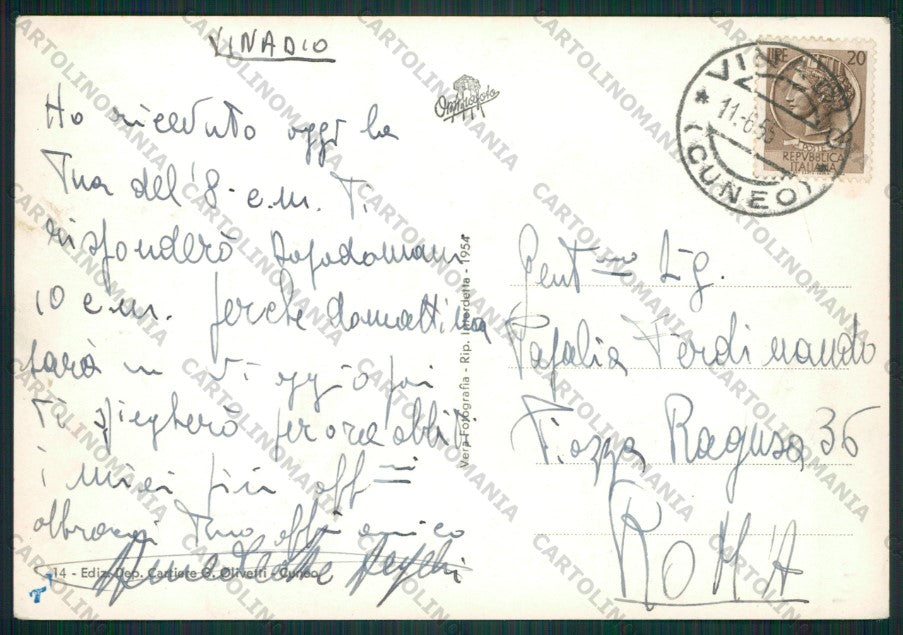 VINADIO
Ho ricevuto oggi la
Tua dell'8. c.m. Ti
risponderò dopodomani
10 c.m. perché domattina
sarò in viaggio poi
Ti spiegherò per ora abbiti
i miei più aff.mi
abbracci Tuo aff. amico
14 - Ediz. Dep. Cartiere G. Olivetti - Cuneo
Vera Fotografia - Rip. Interdetta - 1954
VINADIO
11-6-55
(CUNEO)
LIRE 20
POSTE
REPVBBLICA
ITALIANA
Gent.mo Sig.
Papalia Ferdinando
Piazza Ragusa 36
ROMA
CARTOLINOMANIA